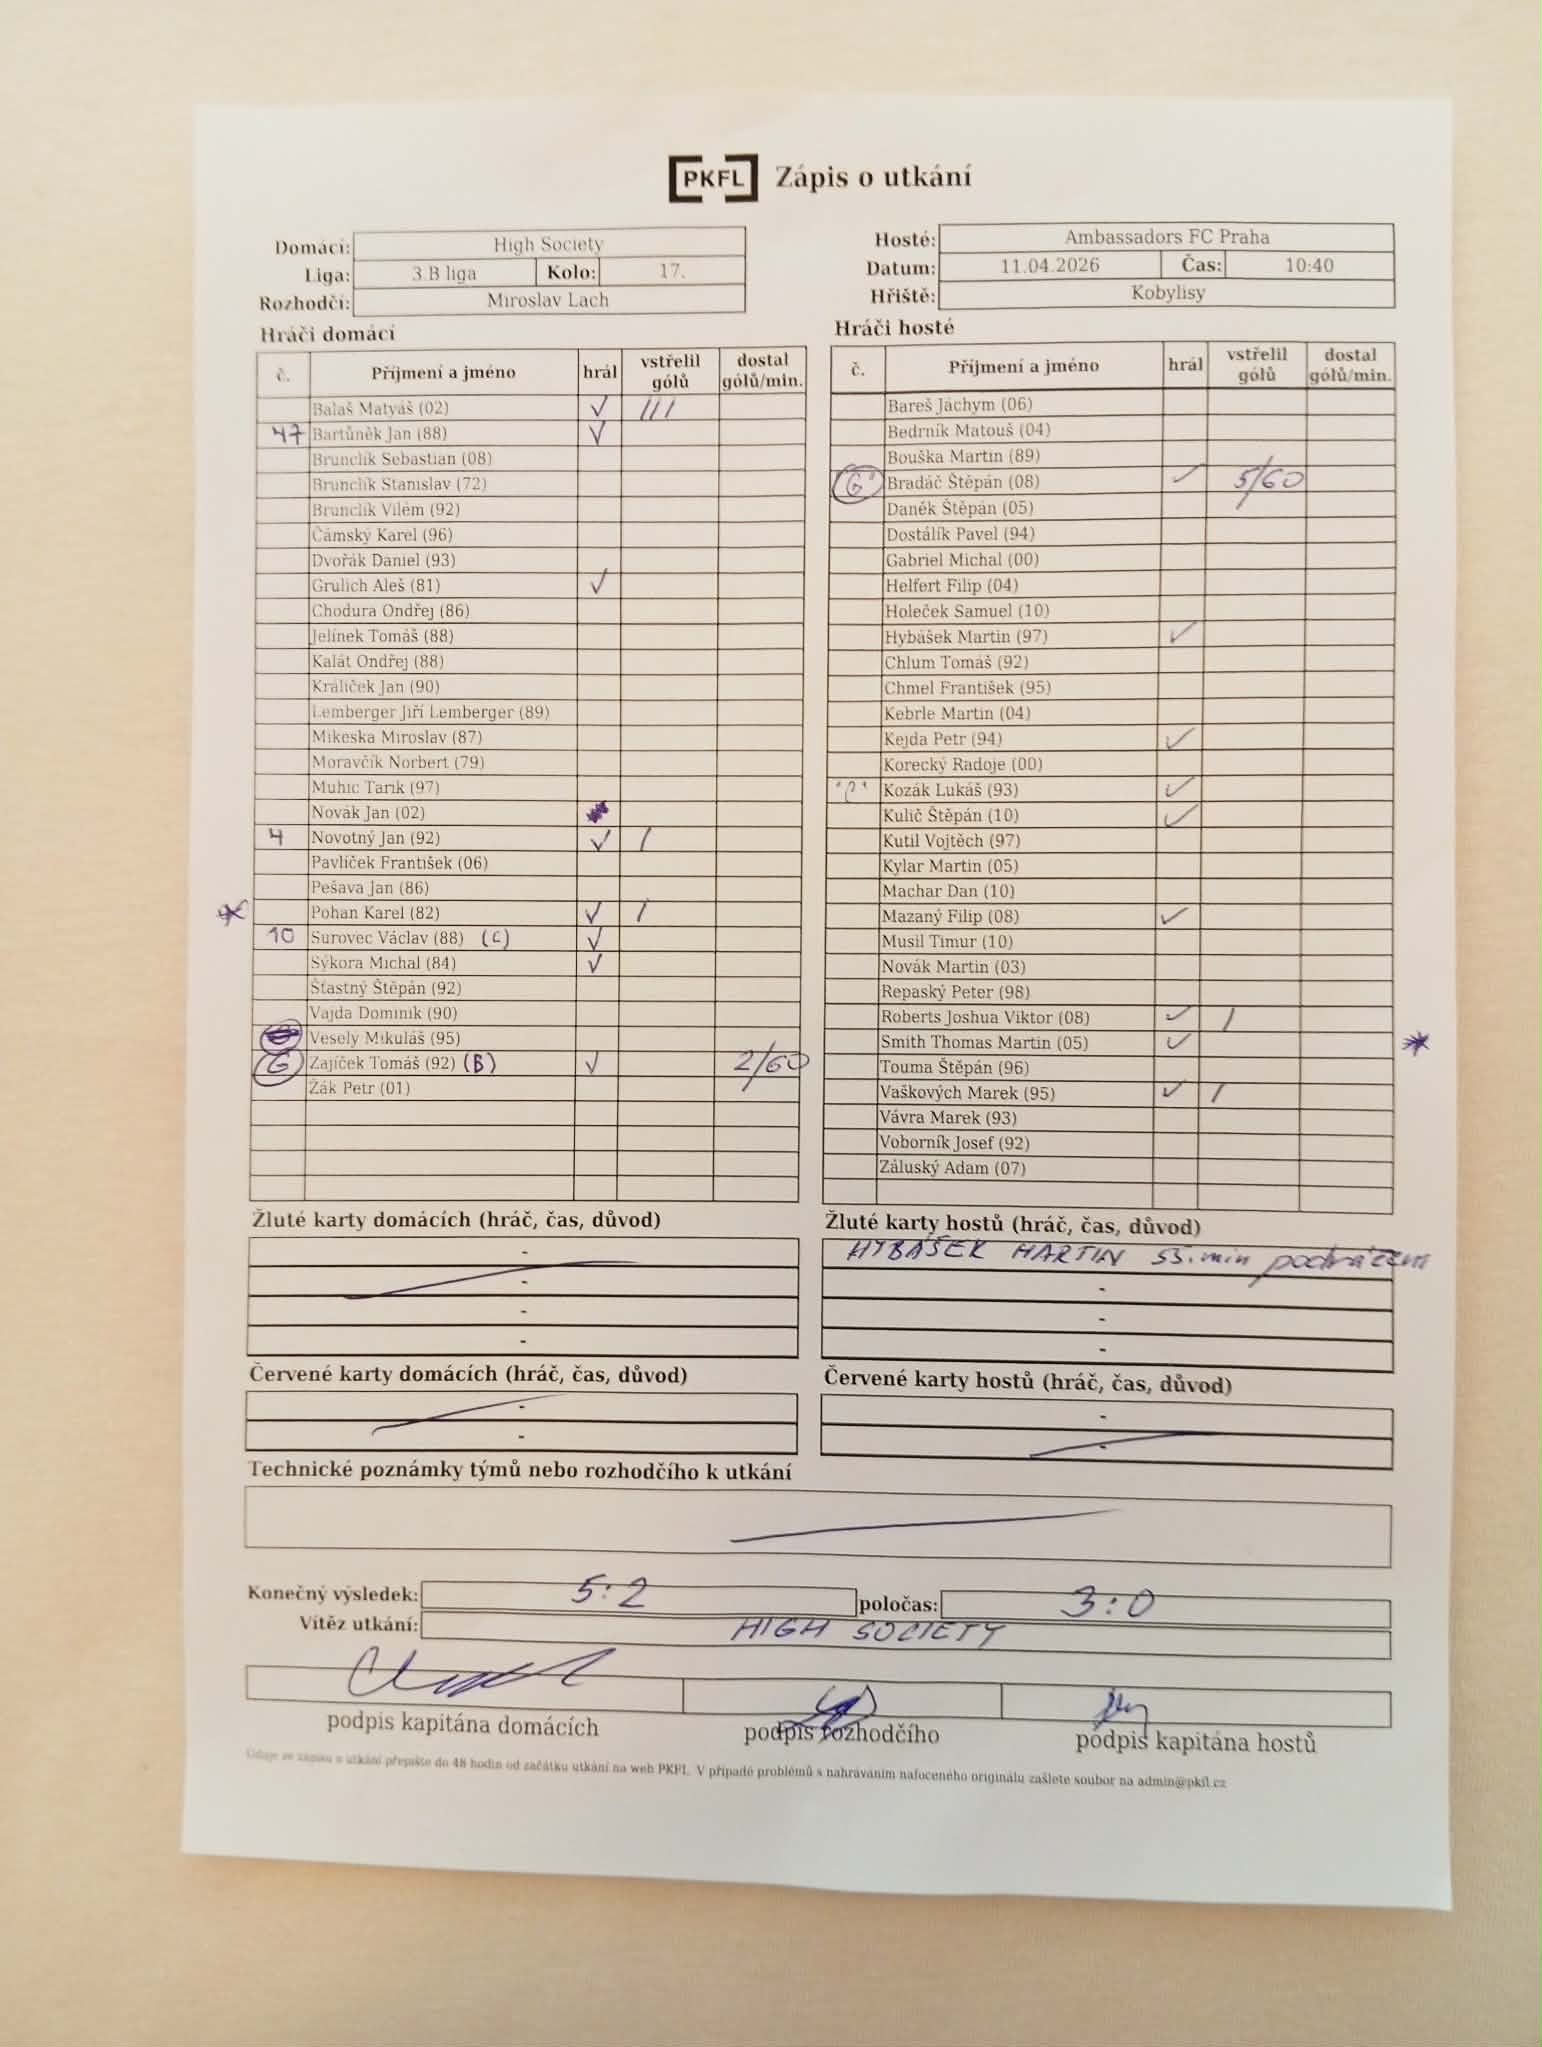 PKFL Zápis o utkání
Domácí: High Society
Liga: 3.B liga Kolo: 17.
Rozhodčí: Miroslav Lach
Hosté: Ambassadors FC Praha
Datum: 11.04.2026 Čas: 10:40
Hřiště: Kobylisy
Hráči domácí
č. Příjmení a jméno hrál vstřelil gólů dostal gólů/min.
Balaš Matyáš (02) ✓ III
47 Bartůněk Jan (88) ✓
Brunclík Sebastian (08)
Brunclík Stanislav (72)
Brunclík Vilém (92)
Čámský Karel (96)
Dvořák Daniel (93)
Grulich Aleš (81) ✓
Chodura Ondřej (86)
Jelínek Tomáš (88)
Kalát Ondřej (88)
Králíček Jan (90)
Lemberger Jiří Lemberger (89)
Mikeska Miroslav (87)
Moravčík Norbert (79)
Muhic Tarik (97)
Novák Jan (02)
4 Novotný Jan (92) ✓ I
Pavlíček František (06)
Pešava Jan (86)
* Pohan Karel (82) ✓ I
10 Surovec Václav (88) (C) ✓
Sýkora Michal (84) ✓
Šťastný Štěpán (92)
Vajda Dominik (90)
Veselý Mikuláš (95)
G Zajíček Tomáš (92) (B) ✓ 2/60
Žák Petr (01)
Hráči hosté
č. Příjmení a jméno hrál vstřelil gólů dostal gólů/min.
Bareš Jáchym (06)
Bedrník Matouš (04)
Bouška Martin (89)
"G" Bradáč Štěpán (08) ✓ 5/60
Daněk Štěpán (05)
Dostálík Pavel (94)
Gabriel Michal (00)
Helfert Filip (04)
Holeček Samuel (10)
Hybášek Martin (97) ✓
Chlum Tomáš (92)
Chmel František (95)
Kebrle Martin (04)
Kejda Petr (94) ✓
Korecký Radoje (00)
"C" Kozák Lukáš (93) ✓
Kulič Štěpán (10) ✓
Kutil Vojtěch (97)
Kylar Martin (05)
Machar Dan (10)
Mazaný Filip (08) ✓
Musil Timur (10)
Novák Martin (03)
Repaský Peter (98)
Roberts Joshua Viktor (08) ✓ I
Smith Thomas Martin (05) ✓ *
Touma Štěpán (96)
Vaškových Marek (95) ✓ I
Vávra Marek (93)
Voborník Josef (92)
Záluský Adam (07)
Žluté karty domácích (hráč, čas, důvod)
-
-
-
-
Žluté karty hostů (hráč, čas, důvod)
HYBÁŠEK MARTIN 55.min podrážení
-
-
-
Červené karty domácích (hráč, čas, důvod)
-
-
Červené karty hostů (hráč, čas, důvod)
-
-
Technické poznámky týmů nebo rozhodčího k utkání
Konečný výsledek: 5:2 poločas: 3:0
Vítěz utkání: HIGH SOCIETY
podpis kapitána domácích podpis rozhodčího podpis kapitána hostů
Údaje ze zápisu o utkání přepište do 48 hodin od začátku utkání na web PKFL. V případě problémů s nahráváním nafoceného originálu zašlete soubor na admin@pkfl.cz